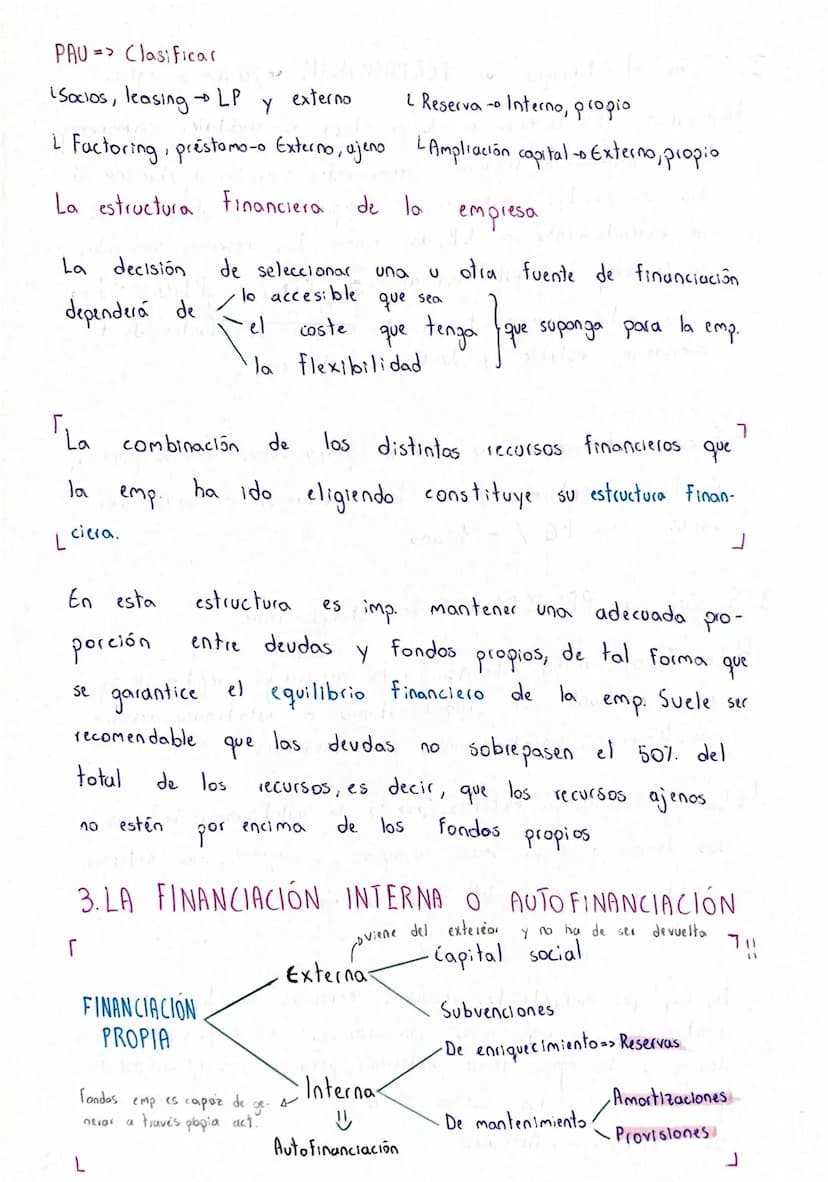 PAU => Clasificar
└ Socios, leasing → LP y externo
└ Reserva → Interno, propio
└ Factoring, préstamo → Externo, ajeno
└ Ampliación capital → Externo, propio
La estructura financiera de la empresa
La decisión de seleccionar una u otra fuente de financiación
dependerá de
lo accesible que sea
el coste que tenga
la flexibilidad
que suponga para la emp.
La combinación de los distintos recursos financieros que
la emp. ha ido eligiendo constituye su estructura finan-
ciera.
En esta estructura es imp. mantener una adecuada pro-
porción entre deudas y fondos propios, de tal forma que
se garantice el equilibrio financiero de la emp. Suele ser
recomendable que las deudas no sobrepasen el 50% del
total de los recursos, es decir, que los recursos ajenos
no estén por encima de los fondos propios
3. LA FINANCIACIÓN INTERNA O AUTOFINANCIACIÓN
viene del exterior y no ha de ser devuelto
!!
Externa
Capital social
Subvenciones
FINANCIACIÓN
PROPIA
Interna
De enriquecimiento => Reservas
De mantenimiento
Amortizaciones
Provisiones
Fondos emp es capaz de ge-
nerar a través propia act.
Autofinanciación